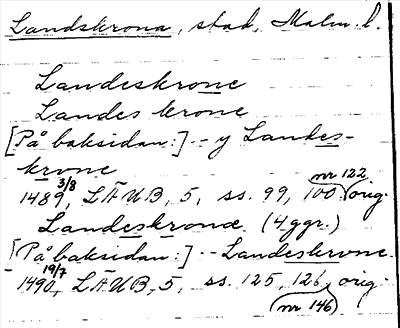 Landskrona, stad, Malm. l.
Landeskrone
Landes krone
[På baksidan:] -- y Landes-
krone
1489 3/8, LÄUB, 5, ss. 99, 100 (nr 122) orig.
Landeskronæ. (4 ggr.)
[På baksidan:] -- Landeskrone.
1490 19/7, LÄUB, 5, ss. 125, 126, orig.
(nr 146)